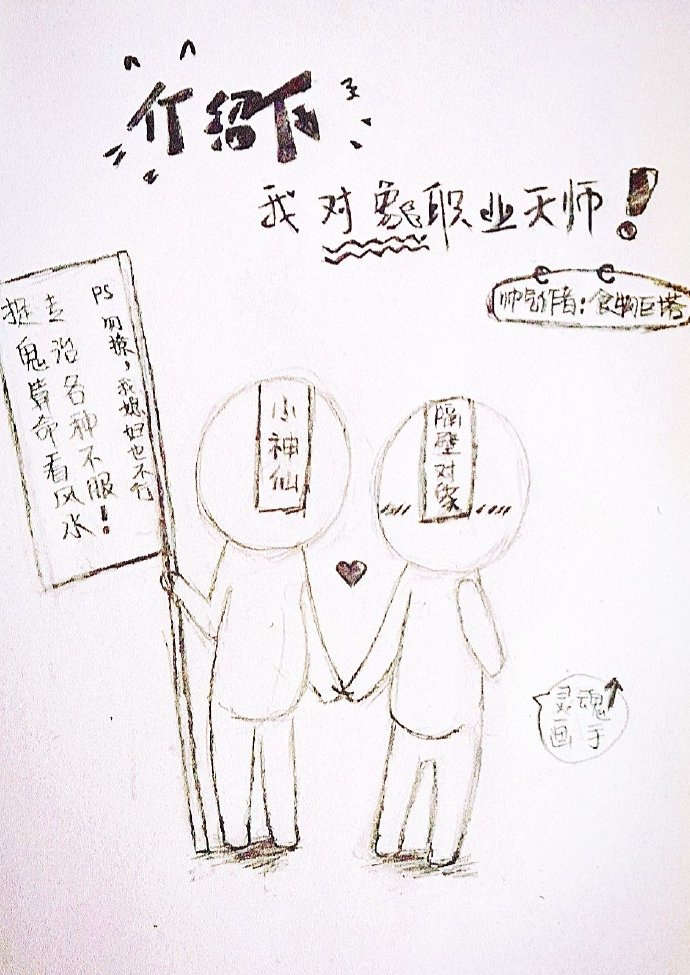 介绍下
我对象职业天师！
帅气作者：食物巨塔
PS 勿撩，我媳妇也不行
专治各种不服！
捉鬼算命看风水
小神仙
隔壁对象
灵魂
画手